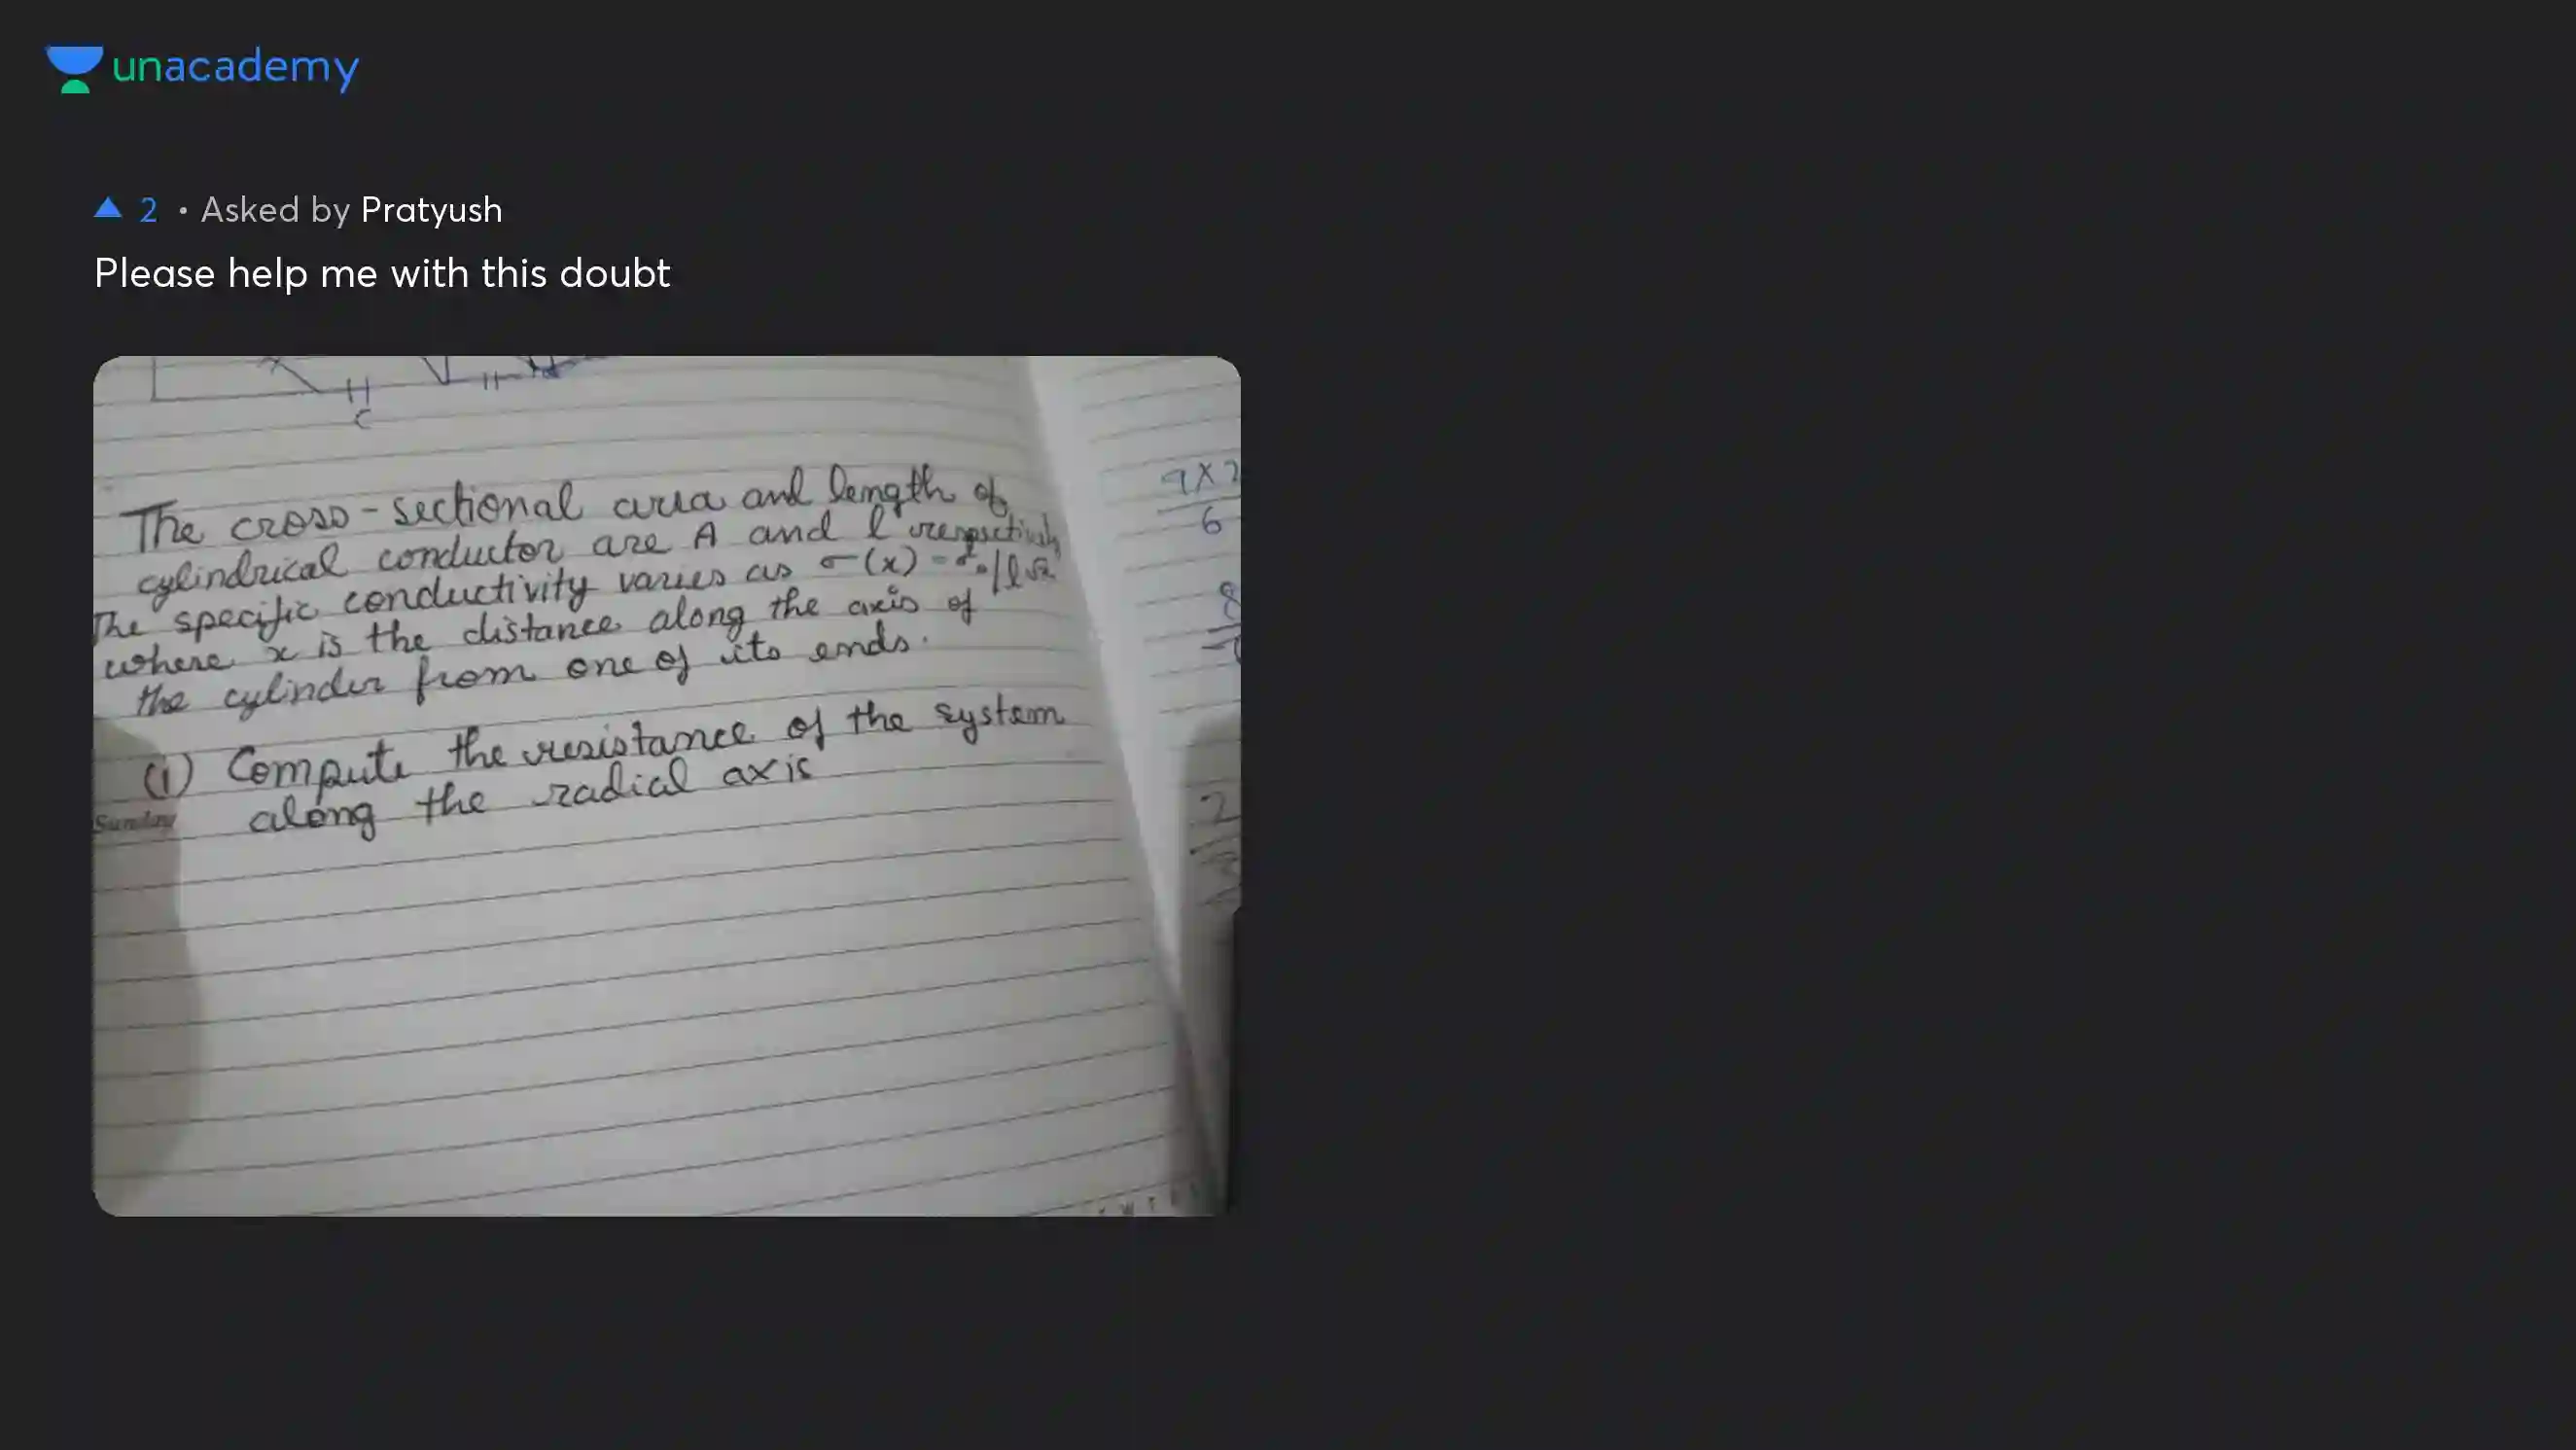 unacademy
2 • Asked by Pratyush
Please help me with this doubt
C
The cross-sectional area and length of
cylindrical conductor are A and l respectively
The specific conductivity varies as σ(x) = σ₀/l√x
where x is the distance along the axis of
the cylinder from one of its ends.
(i) Compute the resistance of the system
along the radial axis
Sunday
6
8
2
3